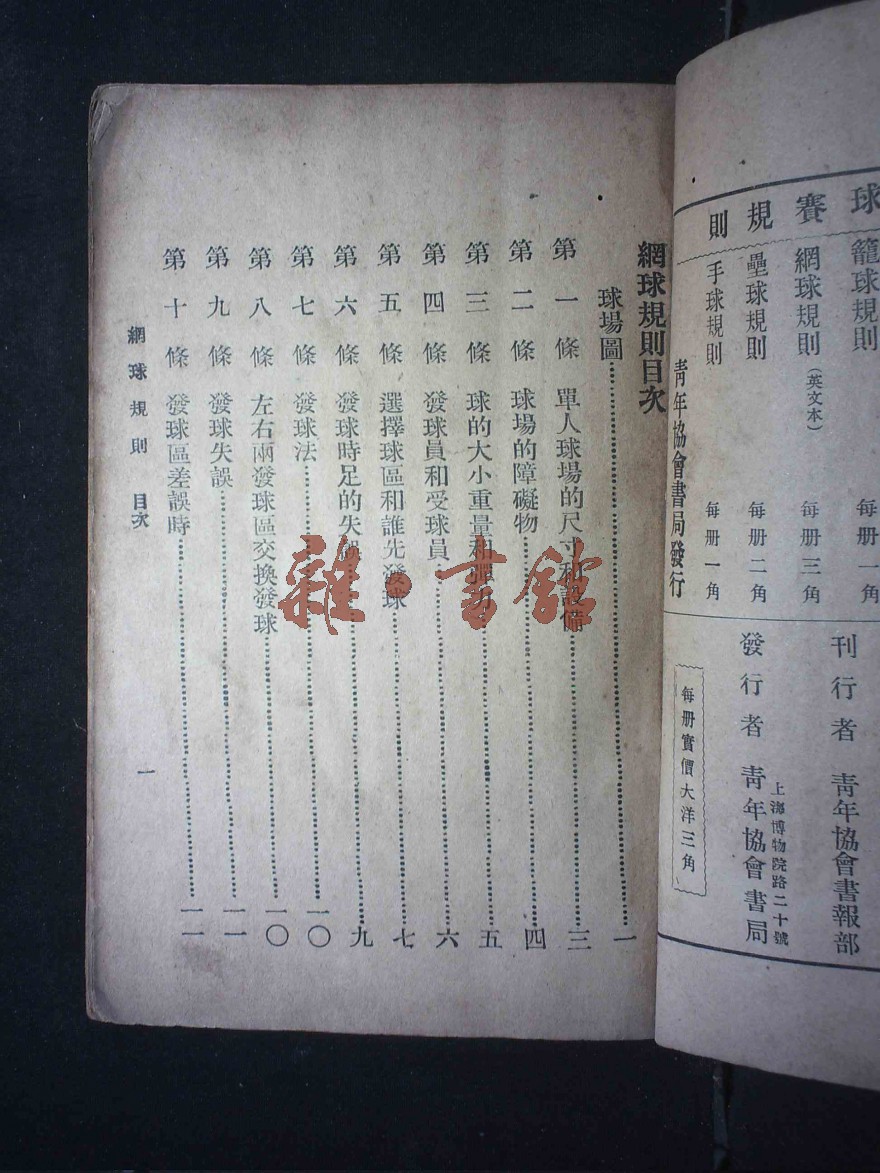 球賽規則
籃球規則
每册一角
網球規則(英文本)
每册三角
壘球規則
每册二角
手球規則
每册一角
青年協會書局發行
刊行者 青年協會書報部
上海博物院路二十號
發行者 青年協會書局
每册實價大洋三角
網球規則目次
球場圖……一
第一條 單人球場的尺寸和設備……三
第二條 球場的障礙物……四
第三條 球的大小重量和彈力……五
第四條 發球員和受球員……六
第五條 選擇球區和誰先發球……七
第六條 發球時足的失誤……九
第七條 發球法……一〇
第八條 左右兩發球區交換發球……一〇
第九條 發球失誤……一一
第十條 發球區差誤時……一一
網球規則 目次
一
雜·書館